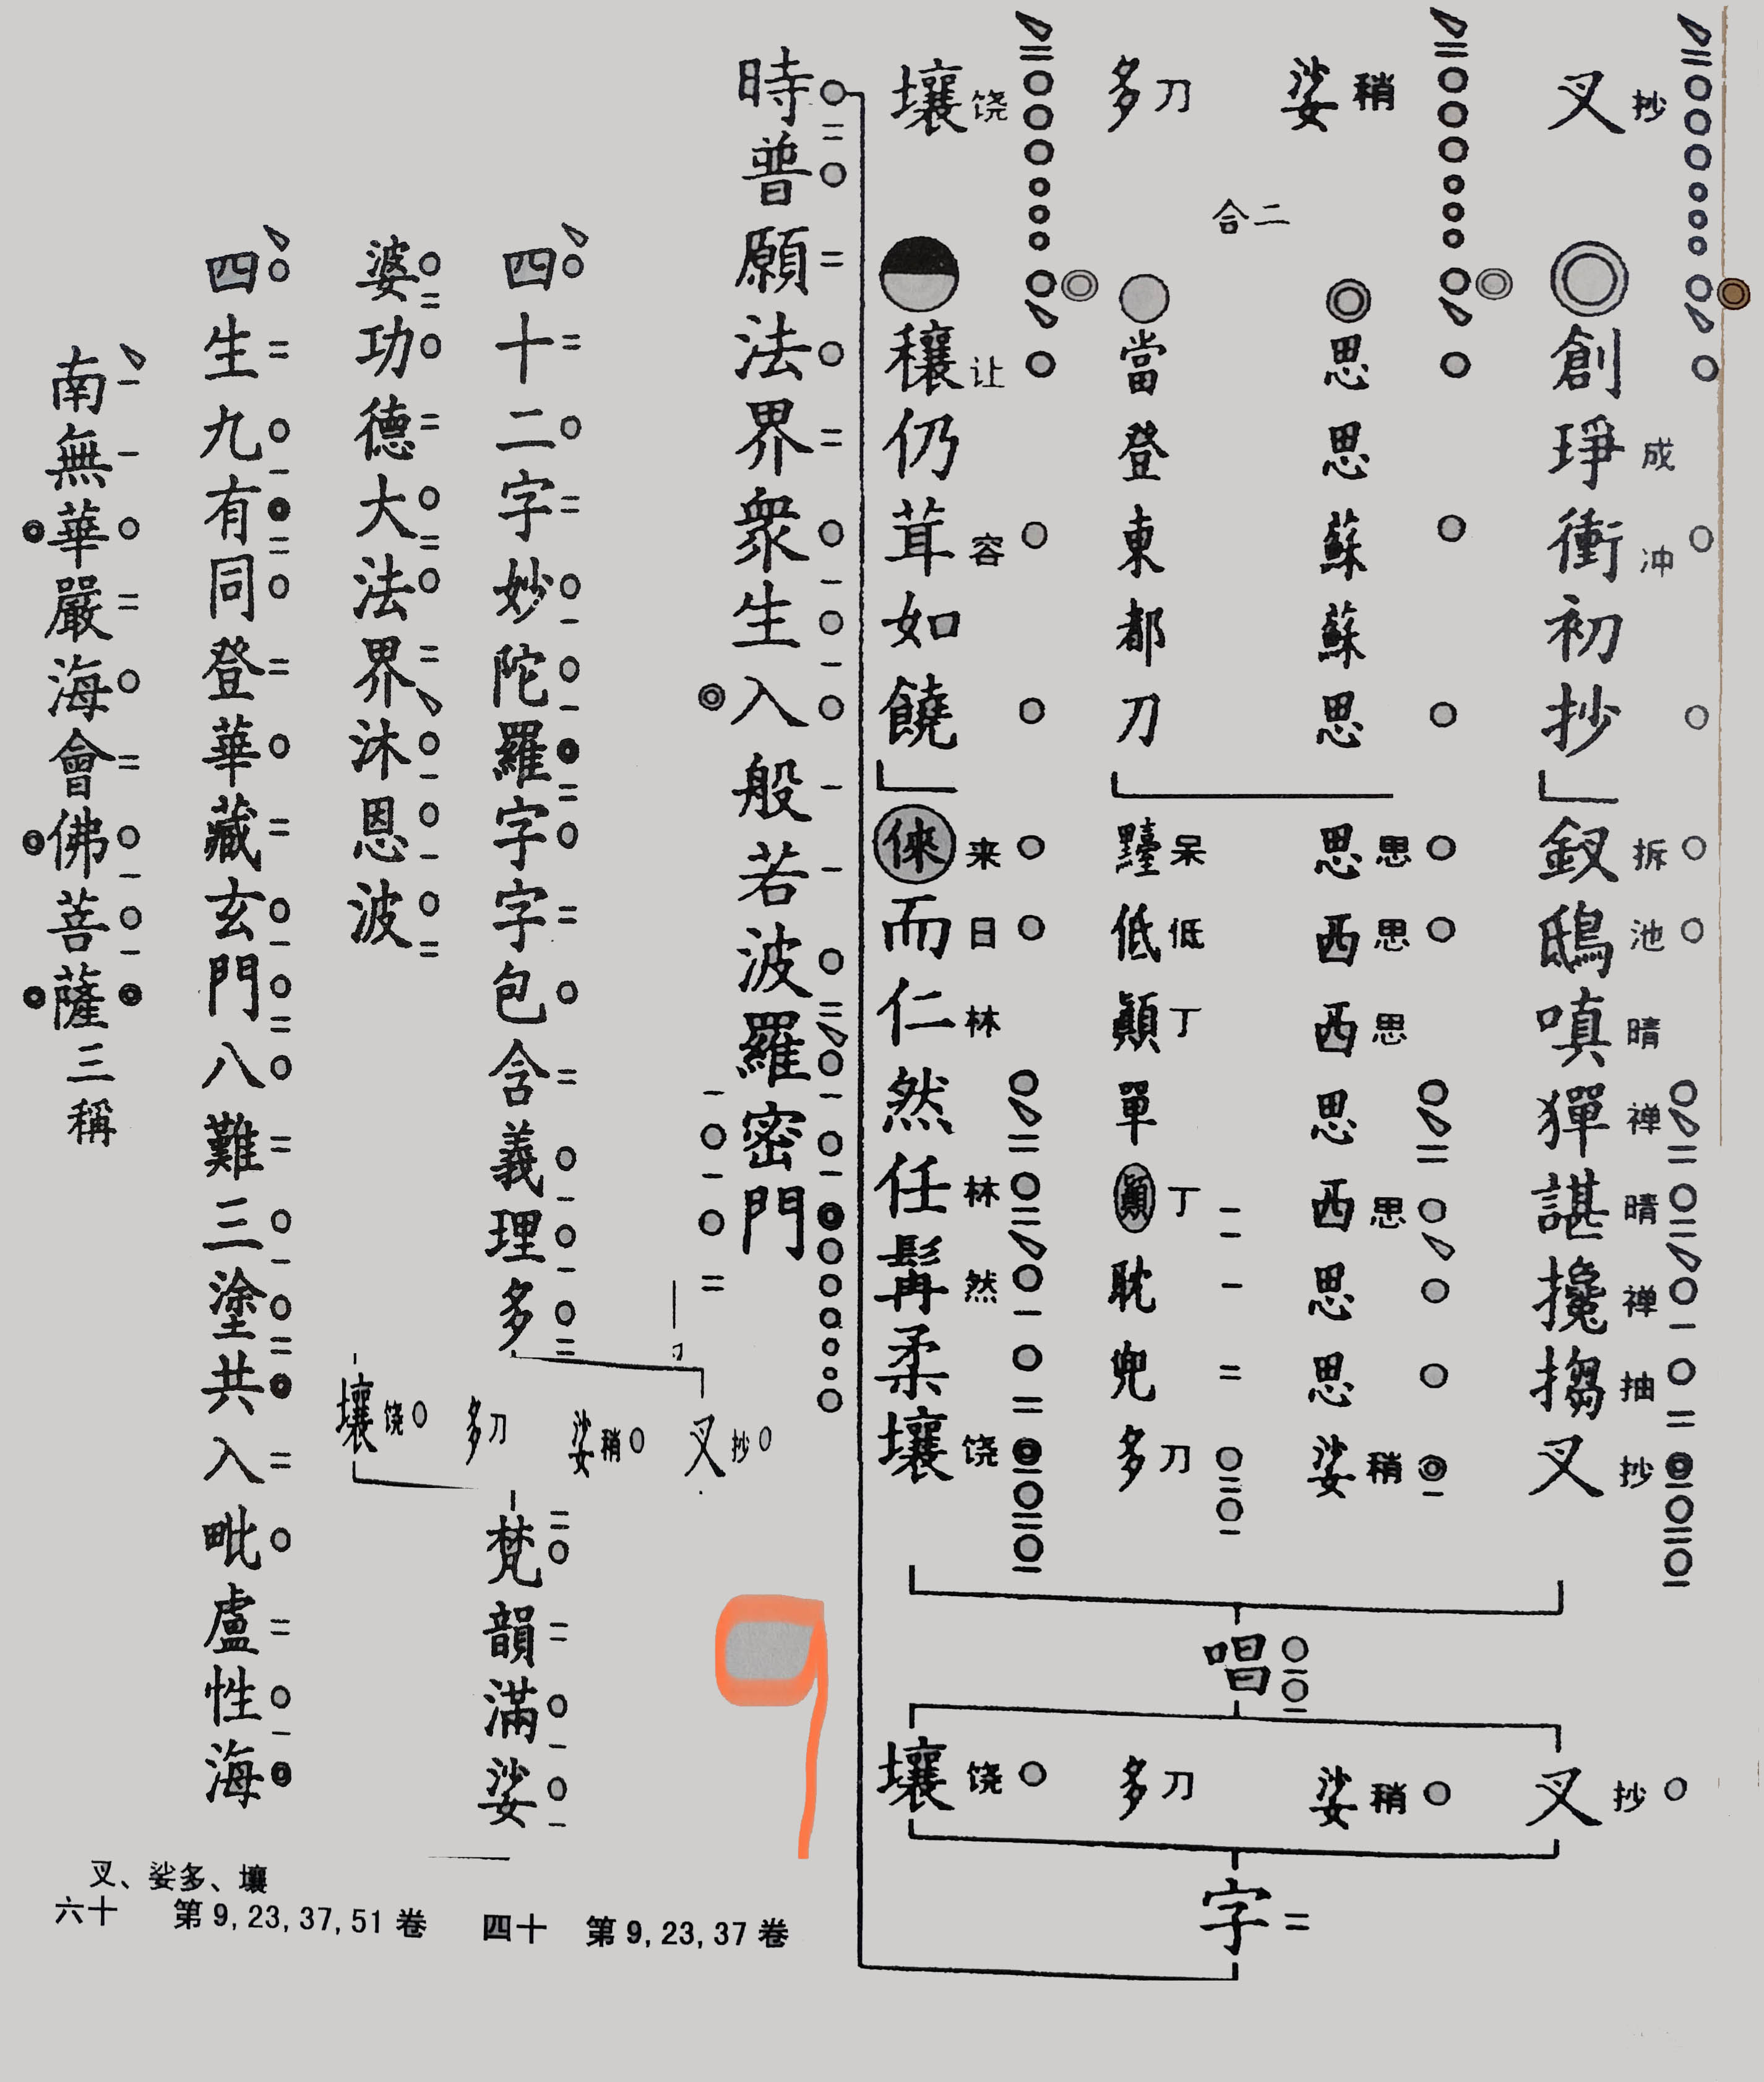 叉抄
創琤成衝冲初抄
釵拆鴟池嗔晴獋禅諶晴攙禅搊抽叉抄
娑稍
思思蘇蘇思
思思西思西思思西思思思娑稍
二合
多刀
當登東都刀
呆低低顛丁單顛丁耽兜多刀
壤饶
穰让仍茸容如饒
倈来而日仁林然任林髯然柔壤饶
唱
叉抄 娑稍 多刀 壤饶
字
時普願法界衆生入般若波羅密門
四十二字妙陀羅字字包含義理多
叉抄 娑稍 多刀 壤饶
梵韻滿娑
婆功德大法界沐恩波
四生九有同登華藏玄門八難三塗共入毗盧性海
南無華嚴海會佛菩薩三稱
叉、娑多、壤
六十 第9,23,37,51卷 四十 第9,23,37卷